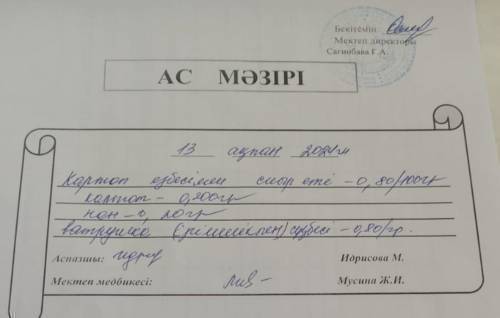 Бекітемін
Мектеп директоры
Сагинбаева Г.А.
АС МӘЗІРІ
13 ақпан 2024ж
Картоп езбесімен сиыр еті – 0,80/100гр
компот – 0,200гр
нан – 0,20гр
ватрушка (ірімшікпен) – 0,80/гр.
Аспазшы: Идрисова М.
Мектеп медбикесі: Мусина Ж.И.